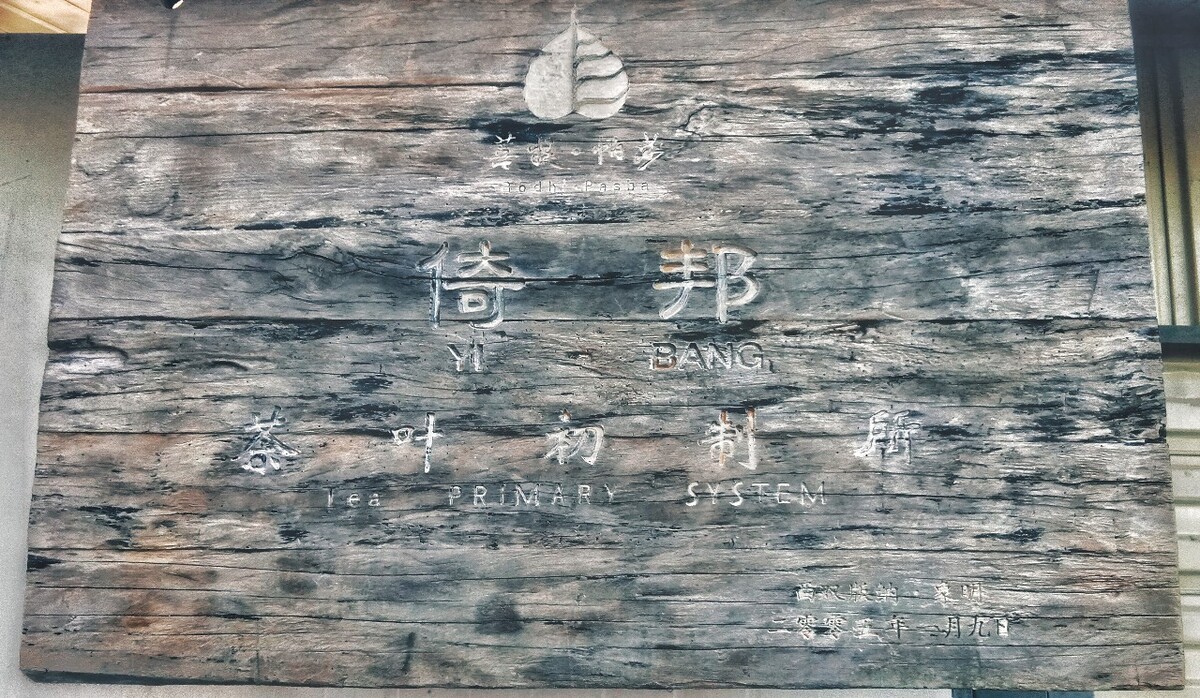 Yodhi Pasba
倚邦
YI BANG
茶叶初制所
Tea PRIMARY SYSTEM
西双版纳·象明
二零零五年二月九日